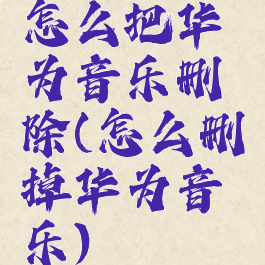 怎么把华
为音乐删
除(怎么删
掉华为音
乐)